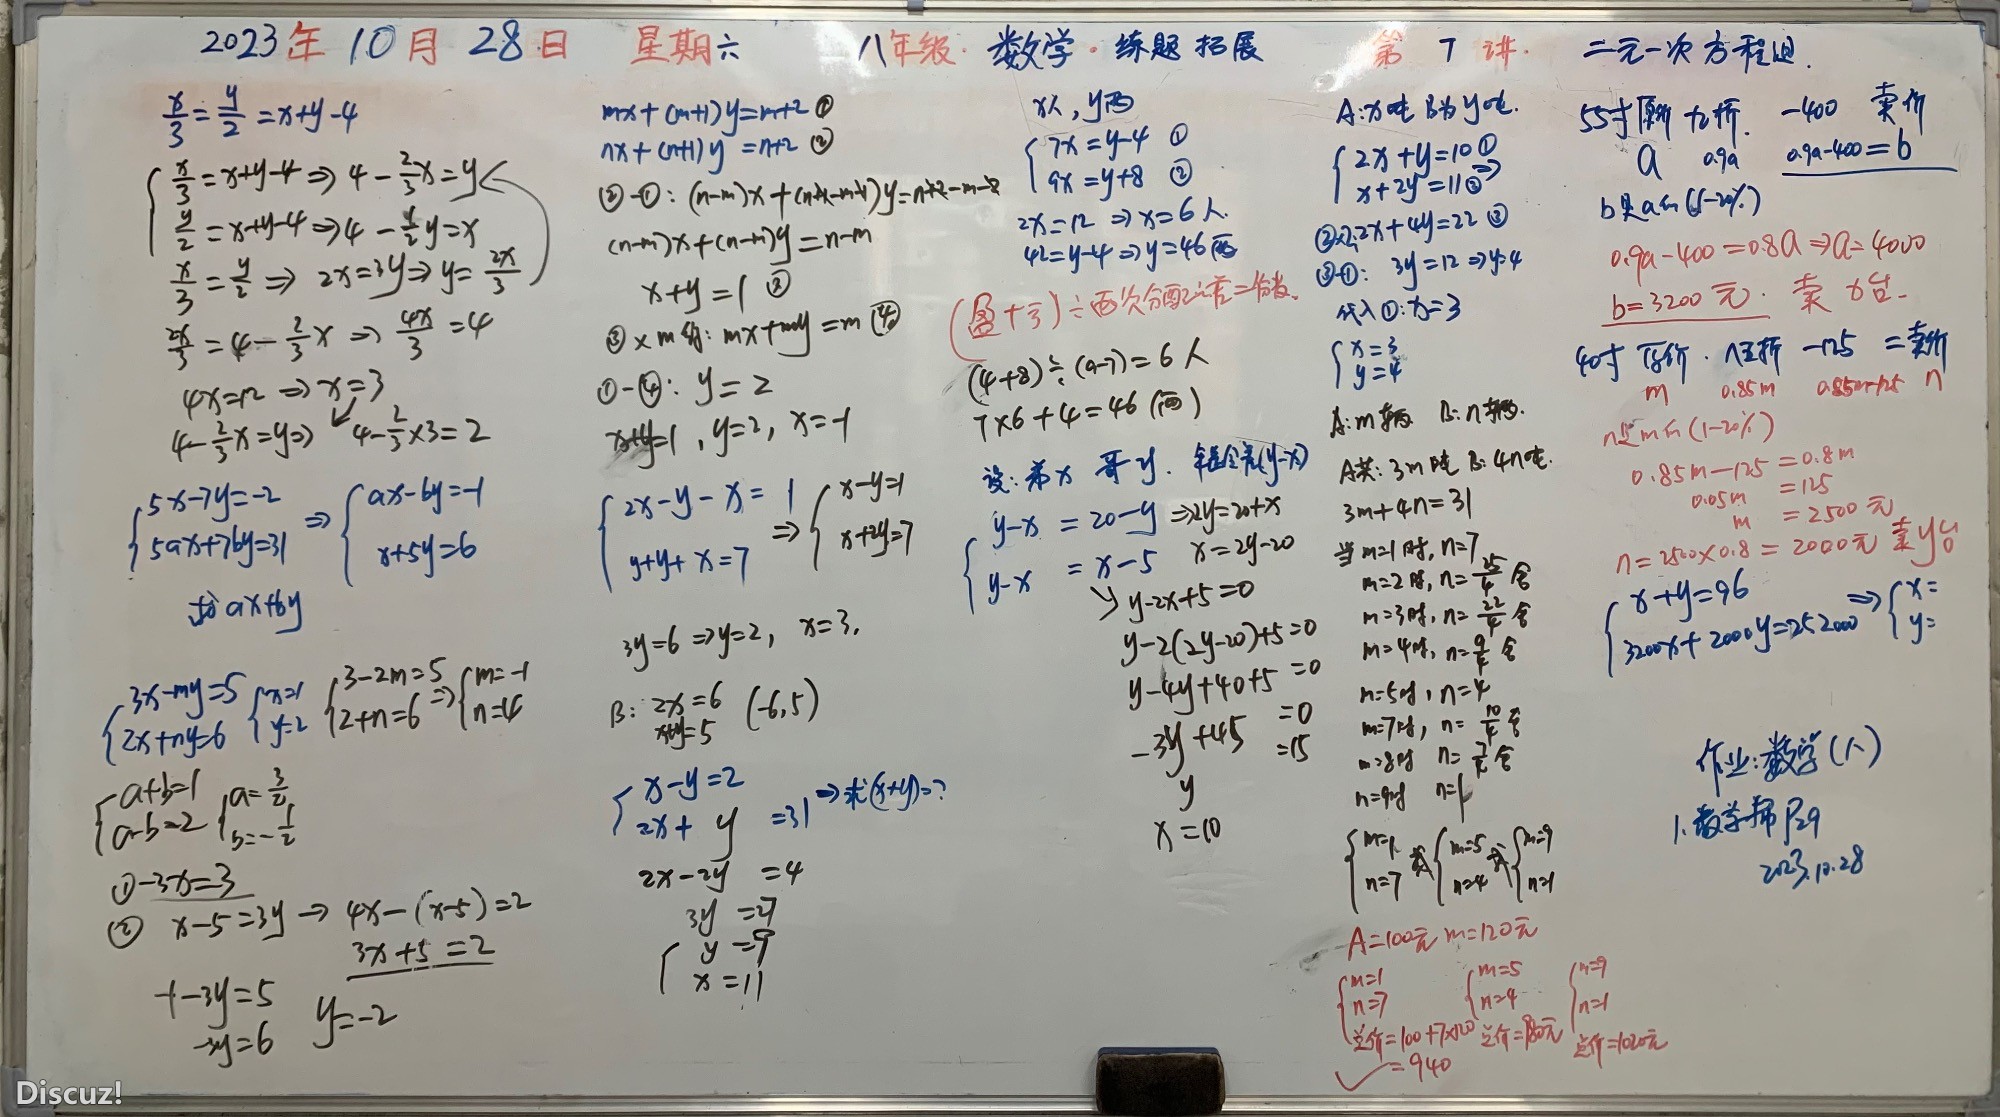 2023年10月28日 星期六 八年级·数学·练题拓展 第7讲· 二元一次方程组.
x/3=y/2=x+y-4
x/3=x+y-4⇒4-2/3x=y
y/2=x+y-4⇒4-1/2y=x
x/3=y/2⇒2x=3y⇒y=2x/3
2x/3=4-2/3x⇒4x/3=4
4x=12⇒x=3
4-2/3x=y⇒4-2/3×3=2
5x-7y=-2
5ax+7by=31
⇒
ax-by=-1
x+5y=6
求ax+by
3x-my=5
2x+ny=6
x=1
y=2
3-2m=5
2+n=6
⇒
m=-1
n=4
a+b=1
a-b=2
a=3/2
b=-1/2
①-3x=3
② x-5=3y→4x-(x-5)=2
3x+5=2
-1-3y=5
-3y=6 y=-2
mx+(m+1)y=m+2①
nx+(n+1)y=n+2②
②-①:(n-m)x+(n+1-m-1)y=n+2-m-2
(n-m)x+(n-m)y=n-m
x+y=1③
③×m得:mx+my=m④
①-④:y=2
x+y=1,y=2,x=-1
2x-y-x=1
y+y+x=7
⇒
x-y=1
x+2y=7
3y=6⇒y=2,x=3.
B:2x=6 (-6,5)
x+y=5
x-y=2
2x+y=31
⇒求(x+y)=?
2x-2y=4
3y=27
y=9
x=11
x人,y两
7x=y-4①
9x=y+8②
2x=12⇒x=6人.
42=y-4⇒y=46两
(盈+亏)÷两次分配之差=份数.
(4+8)÷(9-7)=6人
7×6+4=46(两)
设:弟x 哥y. 年龄差(y-x)
y-x=20-y⇒2y=20+x
y-x=x-5 x=2y-20
y-2x+5=0
y-2(2y-20)+5=0
y-4y+40+5=0
-3y+45=0
y=15
x=10
A:x吨 B为y吨.
2x+y=10①
x+2y=11②
⇒
②×2:2x+4y=22③
③-①:3y=12⇒y=4
代入①:x=3
x=3
y=4
A:m辆 B:n辆.
A共:3m吨 B:4n吨.
3m+4n=31
当m=1时,n=7
m=2时,n=25/4舍
m=3时,n=22/4舍
m=4时,n=9/4舍
m=5时,n=4
m=7时,n=10/4舍
m=8时 n=7/4舍
m=9时 n=1
m=1
n=7
或
m=5
n=4
或
m=9
n=1
A=100元 m=120元
m=1
n=7
总价=100+7×120
=940
m=5
n=4
总价=980元
m=9
n=1
总价=1020元
55寸 原价 九折. -400 卖价
a 0.9a 0.9a-400=b
b是a的(1-20%)
0.9a-400=0.8a⇒a=4000
b=3200元. 卖x台.
40寸 原价. 八五折 -125=卖价
m 0.85m 0.85m-125 n
n是m的(1-20%)
0.85m-125=0.8m
0.05m=125
m=2500元
n=2500×0.8=2000元 卖y台
x+y=96
3200x+2000y=252000
⇒
x=
y=
作业:数学(八)
1.数学帮P29
2023.10.28
Discuz!